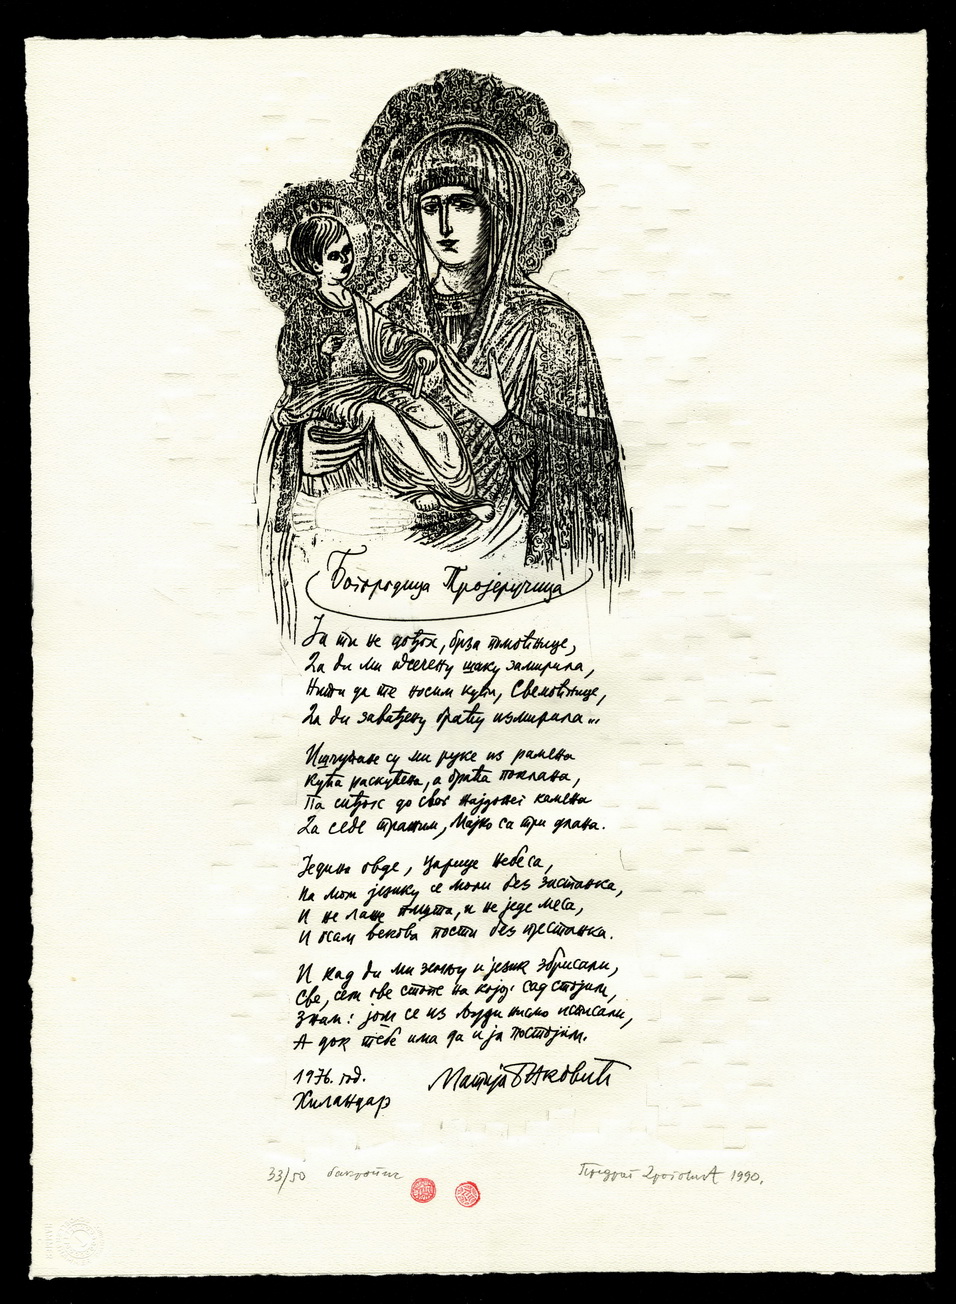 Богородица Тројеручица
Ја ти не дођох, брза помоћнице,
Да би ми одсечену шаку замирила,
Нити да те носим кући, Свемоћнице,
Да би завађену браћу измирила...
Ишчупане су ми руке из рамена
Кућа раскућена, а браћа поклана,
Па сиђох до свог најдоњег камена
Да себе тражим, Мајко са три длана.
Једино овде, Царице небеса,
На мом језику се моли без застанка,
И не лаже, и не једе меса,
И осам векова пости без престанка.
И кад би ми земљу и језик збрисали,
Све, сем ове стопе на којој сад стојим,
Знам: још се из људи нисмо исписали,
А док тебе има да и ја постојим.
1976. год.
Хиландар
Матија Бећковић
33/50 бакропис
1990.